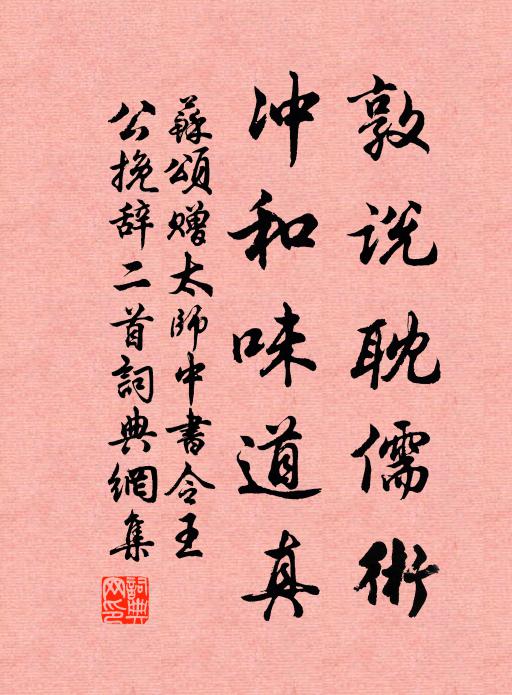 敦说耽儒術
冲和味道真
蘇頌赠太師中書令王
公挽辞二首詞典網集
詞典网印